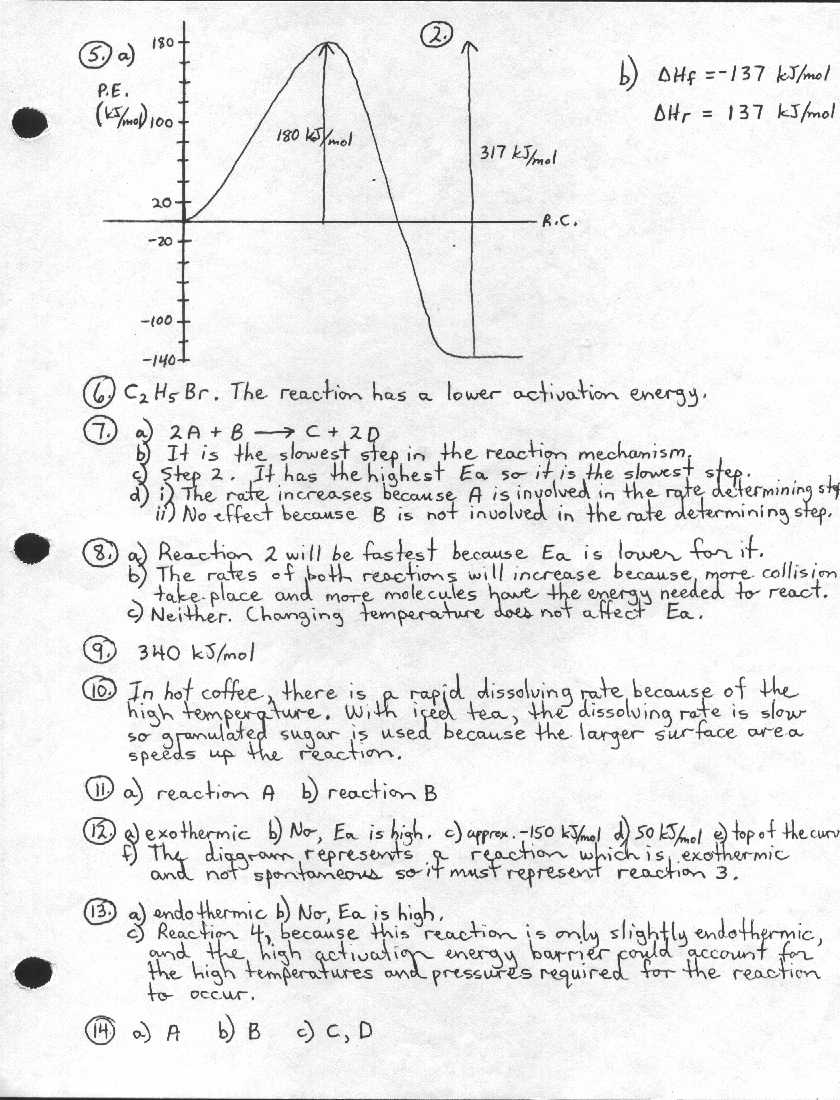 5. a)
P.E.
(kJ/mol)
180
100
20
-20
-100
-140
180 kJ/mol
2.
317 kJ/mol
R.C.
b) ΔHf = -137 kJ/mol
ΔHr = 137 kJ/mol
6. C2H5Br. The reaction has a lower activation energy.
7. a) 2A + B → C + 2D
b) It is the slowest step in the reaction mechanism.
c) Step 2. It has the highest Ea so it is the slowest step.
d) i) The rate increases because A is involved in the rate determining ste
ii) No effect because B is not involved in the rate determining step.
8. a) Reaction 2 will be fastest because Ea is lower for it.
b) The rates of both reactions will increase because more collision
take place and more molecules have the energy needed to react.
c) Neither. Changing temperature does not affect Ea.
9. 340 kJ/mol
10. In hot coffee, there is a rapid dissolving rate because of the
high temperature. With iced tea, the dissolving rate is slow
so granulated sugar is used because the larger surface area
speeds up the reaction.
11. a) reaction A b) reaction B
12. a) exothermic b) No, Ea is high. c) approx. -150 kJ/mol d) 50 kJ/mol e) top of the curv
f) The diagram represents a reaction which is exothermic
and not spontaneous so it must represent reaction 3.
13. a) endothermic b) No, Ea is high.
c) Reaction 4, because this reaction is only slightly endothermic,
and the high activation energy barrier could account for
the high temperatures and pressures required for the reaction
to occur.
14 a) A b) B c) C, D